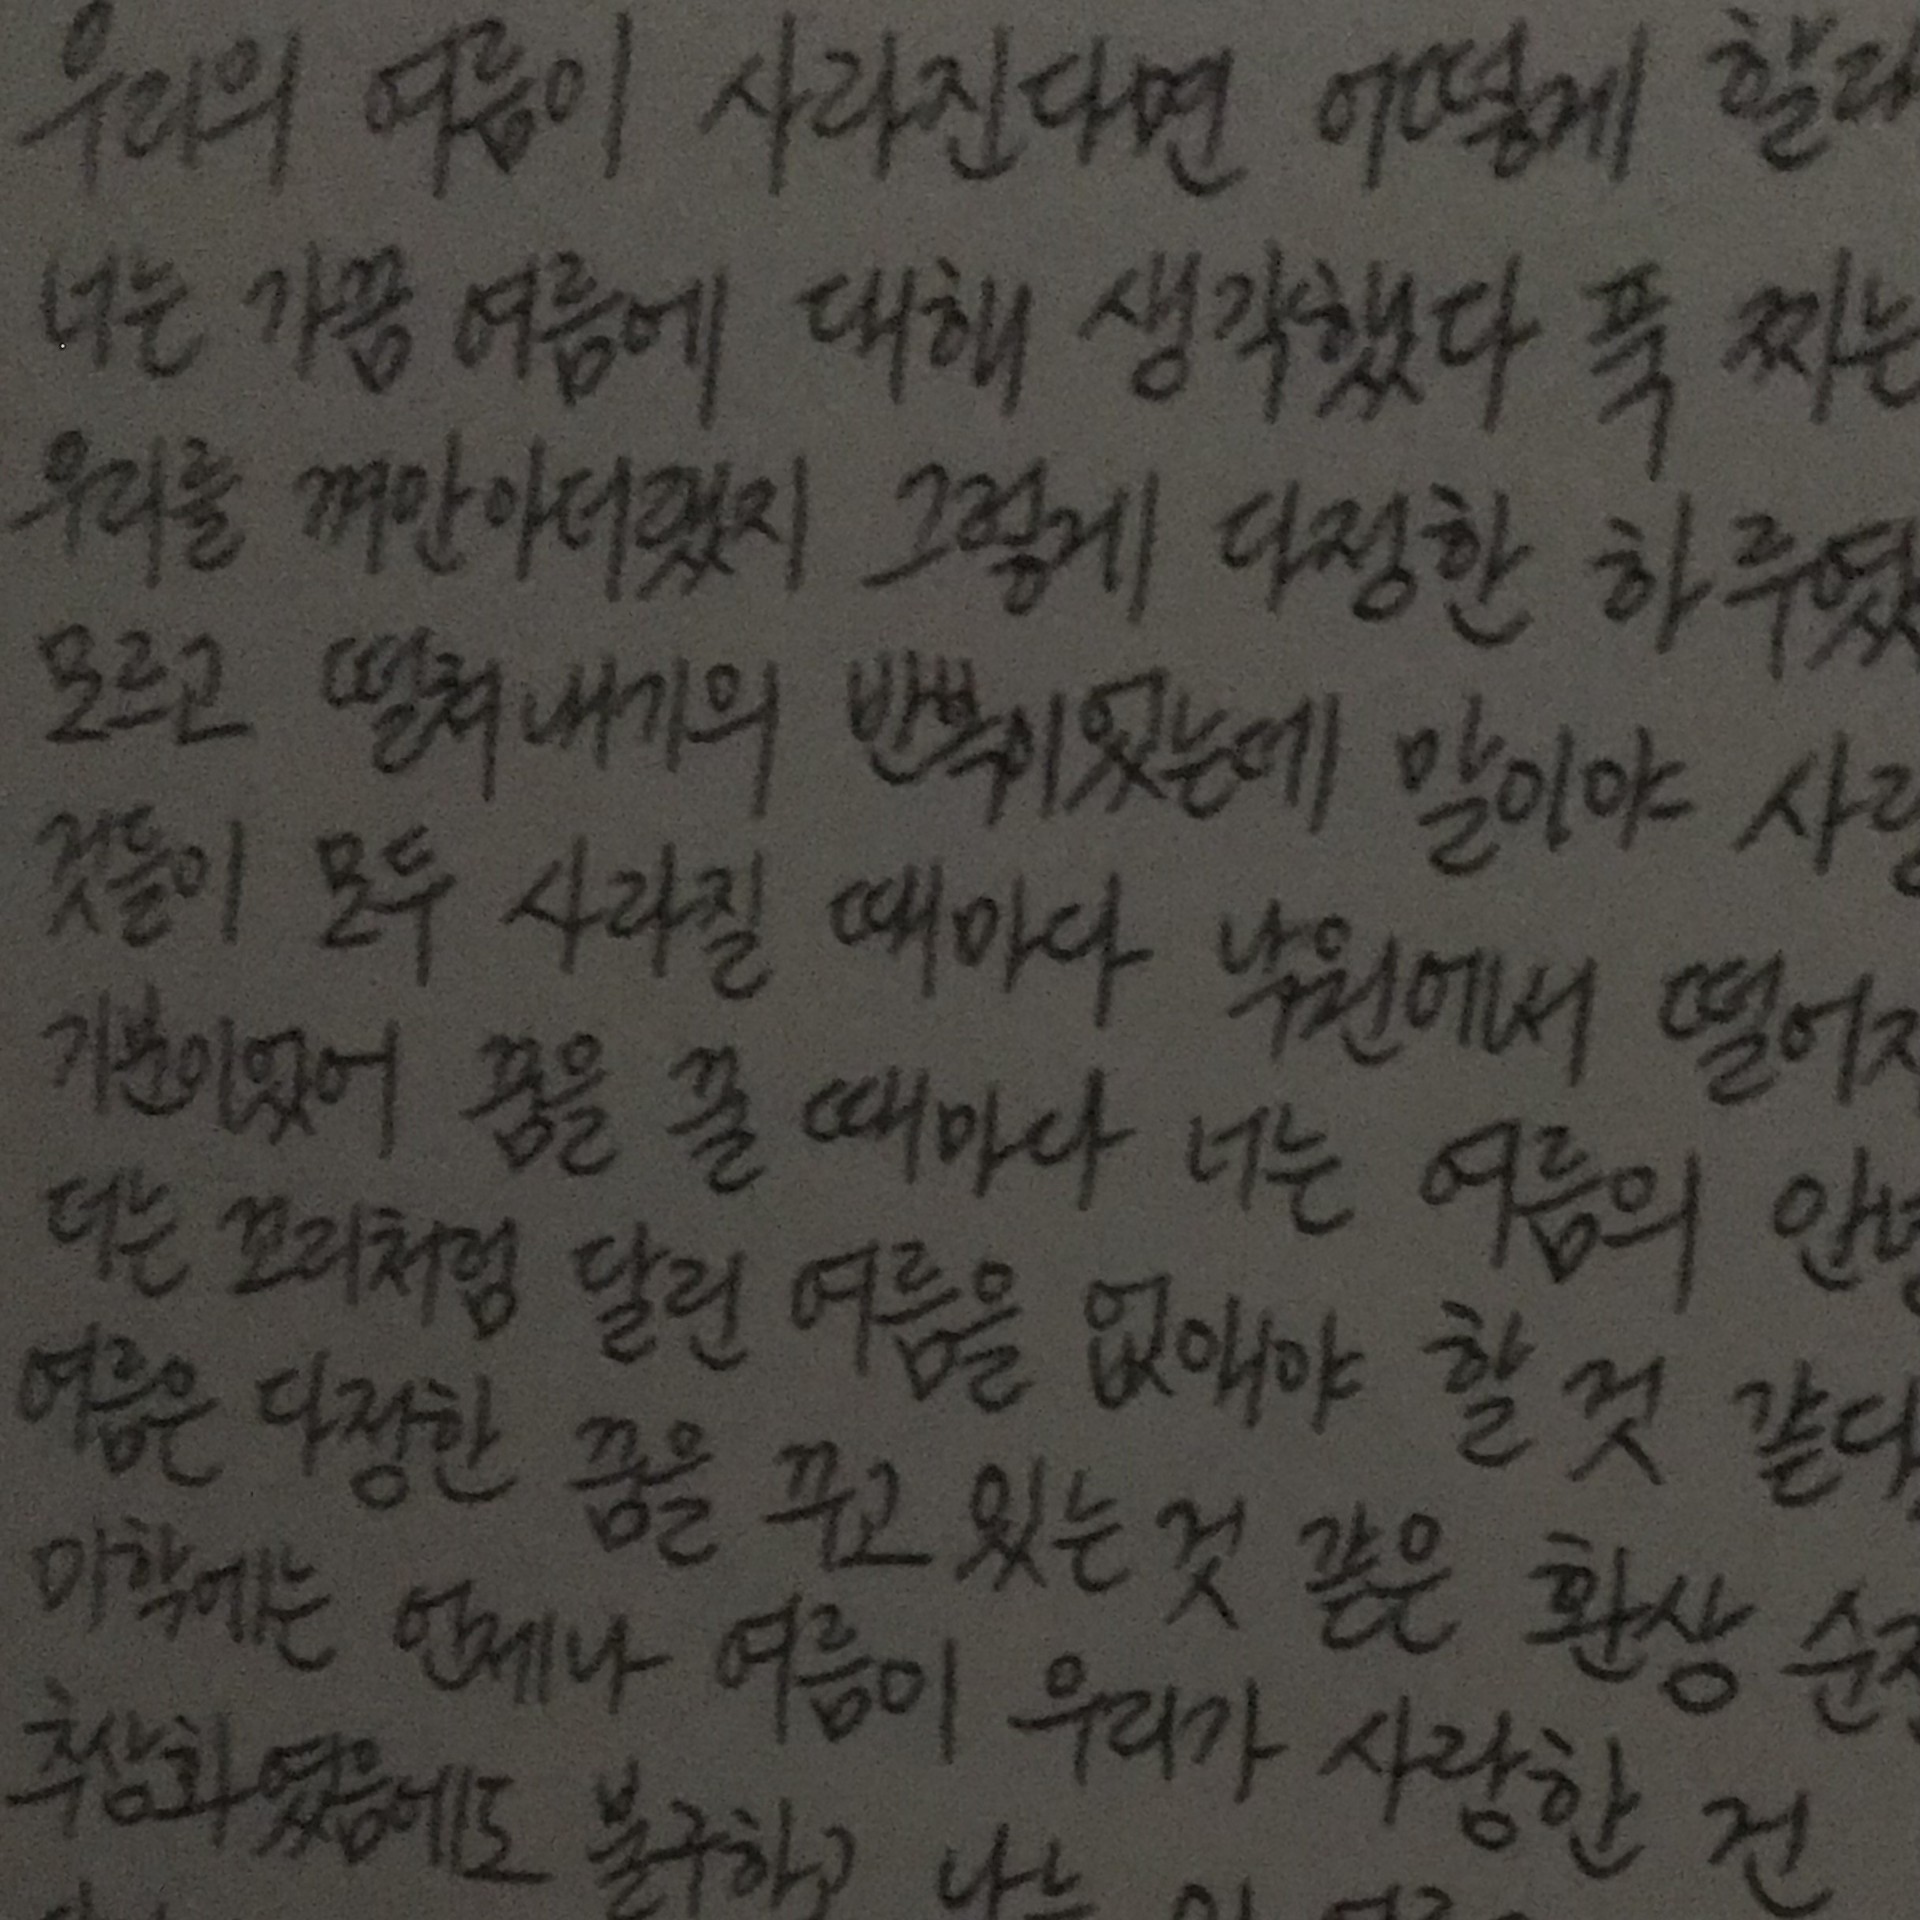 우리의 여름이 사라진다면 어떻게 할래
너는 가끔 여름에 대해 생각했다 푹 찌는
우리를 껴안아더랬지 그렇게 다정한 하루였
모르고 떨쳐내기의 반복이었는데 말이야 사랑
것들이 모두 사라질 때마다 낙원에서 떨어지
기분이었어 꿈을 꿀 때마다 너는 여름의 안녕
너는 꼬리처럼 달린 여름을 없애야 할 것 같다
여름은 다정한 꿈을 꾸고 있는 것 같은 환상
미학에는 언제나 여름이 우리가 사랑한 건
추상화였음에도 불구하고 나는